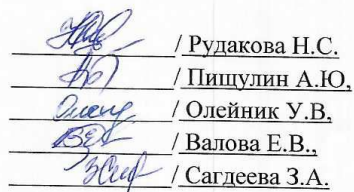 / Рудакова Н.С.
/ Пищулин А.Ю,
/ Олейник У.В,
/ Валова Е.В.,
/ Сагдеева З.А.